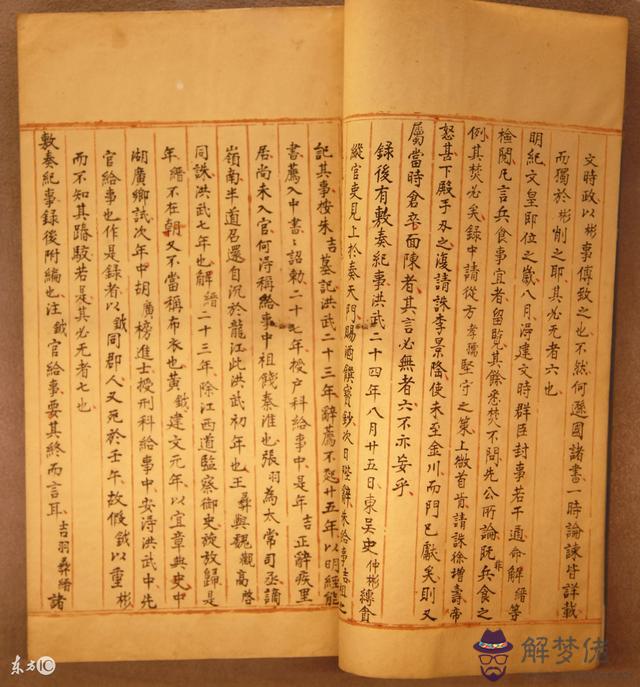 文時政以彬事傅致之也不然何遜國諸書一時論諫皆詳載
而獨於彬削之耶其必无者六也
明紀文皇即位之歲八月淂建文時群臣封事若干通命解縉等
檢閱凡言兵食事宜者留覽其餘悉焚不問先公所論既非兵食之
例其焚必矣録中請從方孝孺堅守之策上微首肯請誅徐增壽帝
怒甚下殿手刃之復請誅李景隆使未至金川而門已獻矣則又
屬當時倉卒面陳者其言必無者六不亦妄乎
録後有敷奏紀事洪武二十四年八月廿五日東吴史仲彬縛貪
縱官吏見上於奏天門賜酒饌寳鈔次日陛辭朱給事吉祖之
記其事按朱吉墓記洪武二十三年辭薦不起廿五年以明經能
書薦入中書二十七年授户科給事中是年吉正辭疾里
居尚未入官何淂稱給事中祖餞秦淮也張羽為太常司丞謫
嶺南半道召還自沉於龍江此洪武初年也王彞與魏觀高啓
同誅洪武七年也解縉二十三年除江西道監察御史旋放歸是
年縉不在朝又不當稱布衣也黄鉞建文元年以宜章典史中
湖廣鄉試次年中胡廣榜進士授刑科給事中安淂洪武中先
官給事也作是録者以鉞同郡人又死於壬午故假鉞以重彬
而不知其踳駮若是其必无者七也
敷奏紀事録後附編也注鉞官給事要其終而言耳吉羽彞縉諸
解梦佬
东方IC